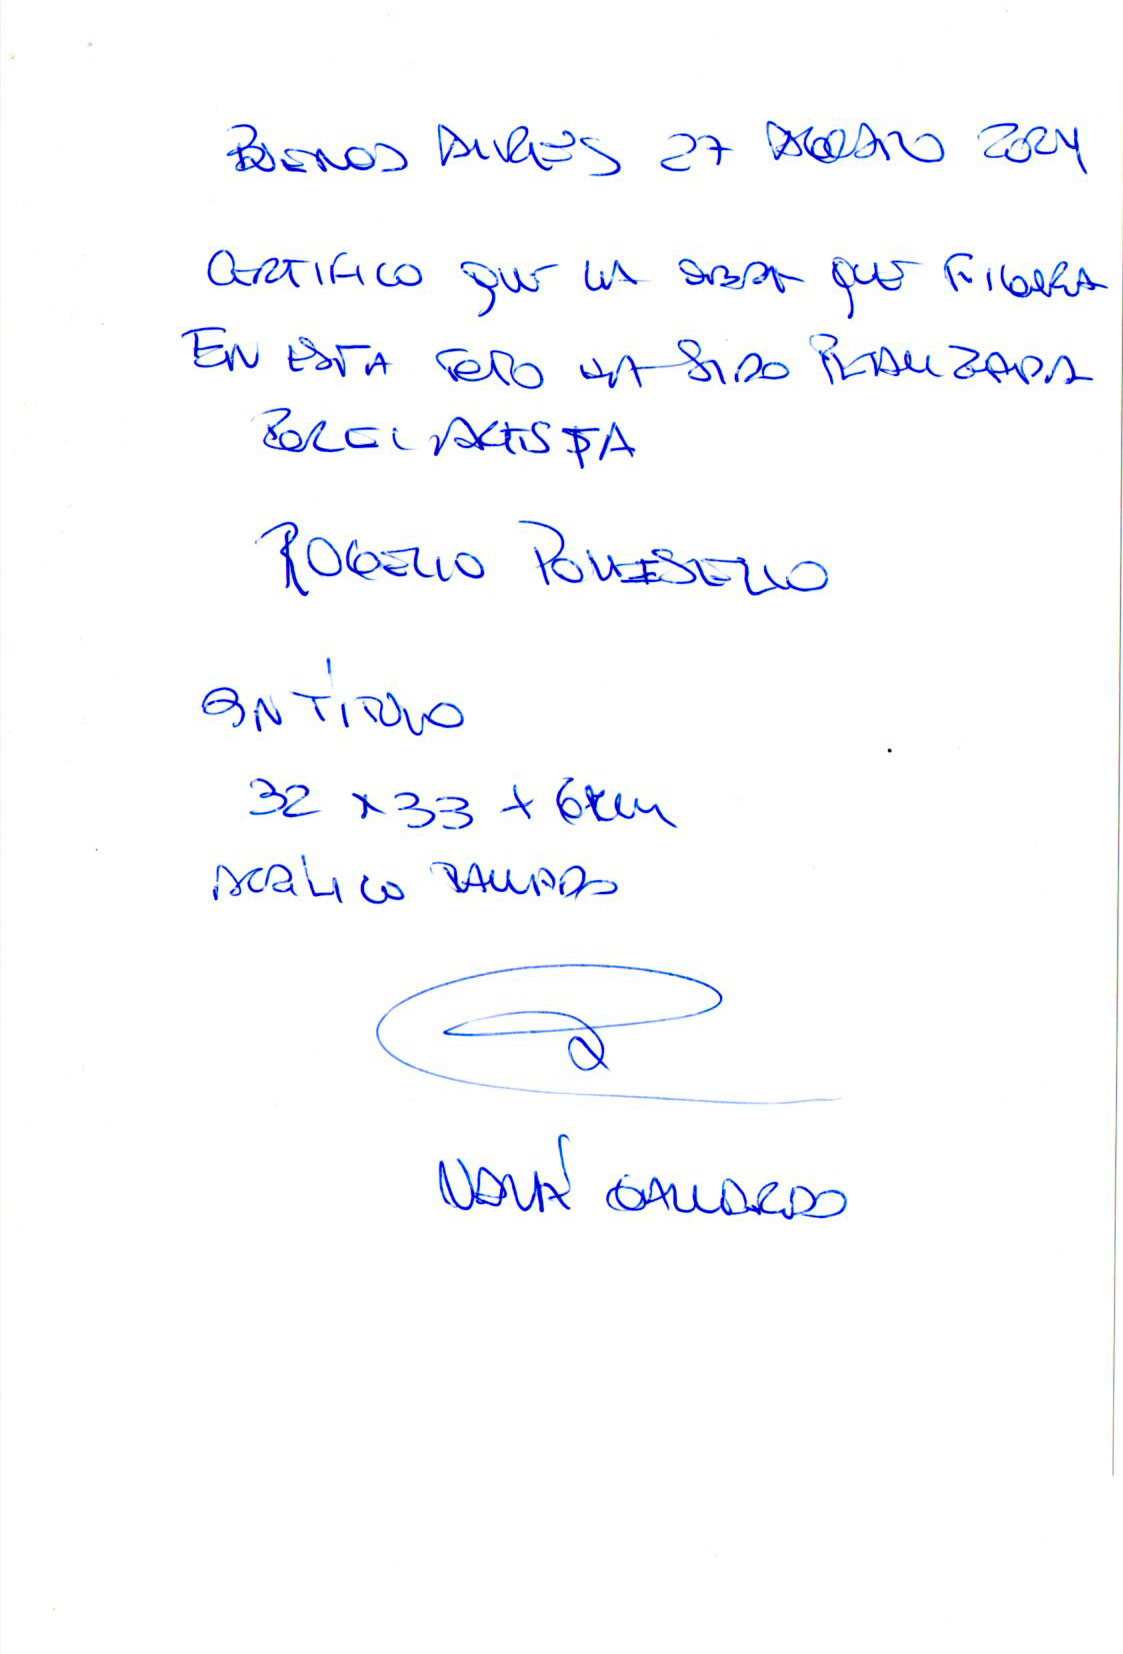 BUENOS AIRES 27 AGOSTO 2024
CERTIFICO QUE LA OBRA QUE FIGURA
EN ESTA FOTO HA SIDO REALIZADA
POR EL ARTISTA
ROGELIO POLESELLO
SIN TÍTULO
32 x 33 x 6 cm
ACRÍLICO TALLADO
NANÁ GALLARDO